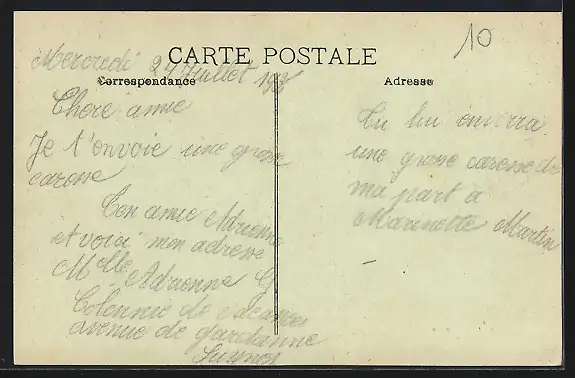 10
CARTE POSTALE
Mercredi 24 Juillet
Correspondance
Adresse
Chere amie
Je t'envoie une grosse
caresse
Ton amie Adrienne
et voici mon adresse
Melle Adrienne G
Colonnie de vacances
avenue de gardanne
Tu lui enverra
une grosse caresse de
ma part a
Marinette Martin